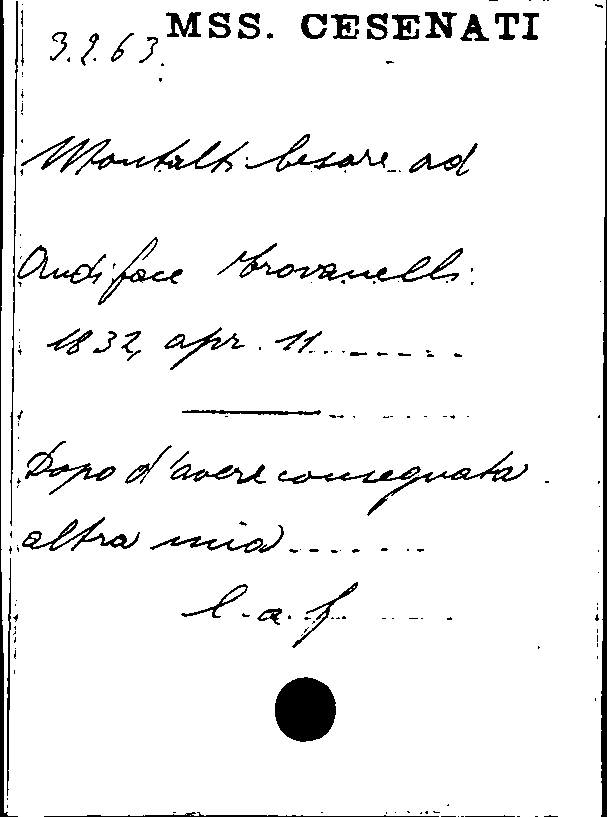 MSS. CESENATI
3.2.63.
Montalti Cesare ad
Audiface Trovanelli
1832, apr. 11
Dopo d'avere consegnata
altra mia
l. a. f.